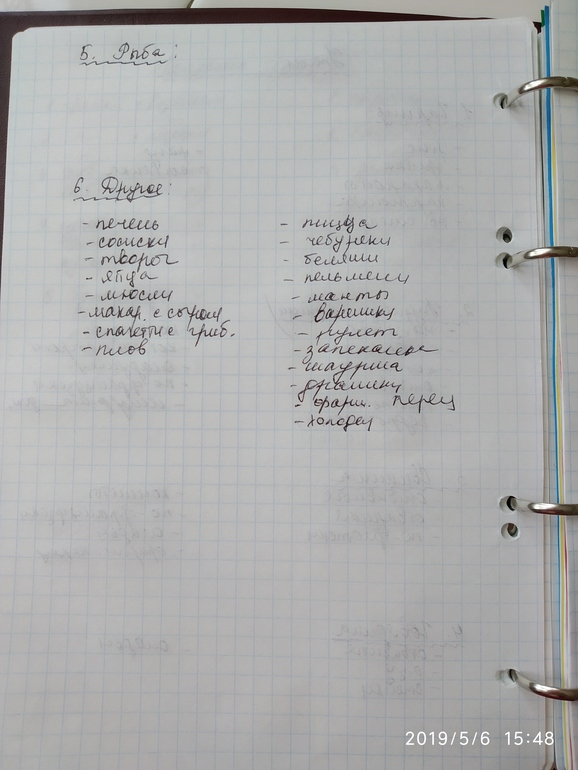 5. Рыба:
6. Другое:
- печень
- сосиски
- творог
- яйца
- мюсли
- макар. с сыром
- спагетти с гриб.
- плов
- пицца
- чебуреки
- беляши
- пельмени
- манты
- вареники
- рулет
- запеканка
- шаурма
- драники
- фарш. перец
- холодец
2019/5/6 15:48